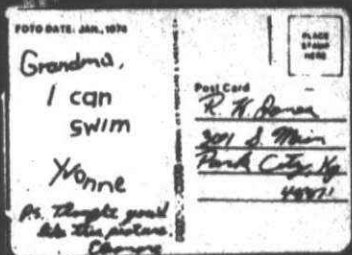 FOTO DATE: JAN., 1974
Grandma,
I can
swim
Yvonne
P.S. Thought you'd
like this picture.
PLACE
STAMP
HERE
Post Card
R. H.
201 S. Main
Park City, Ky